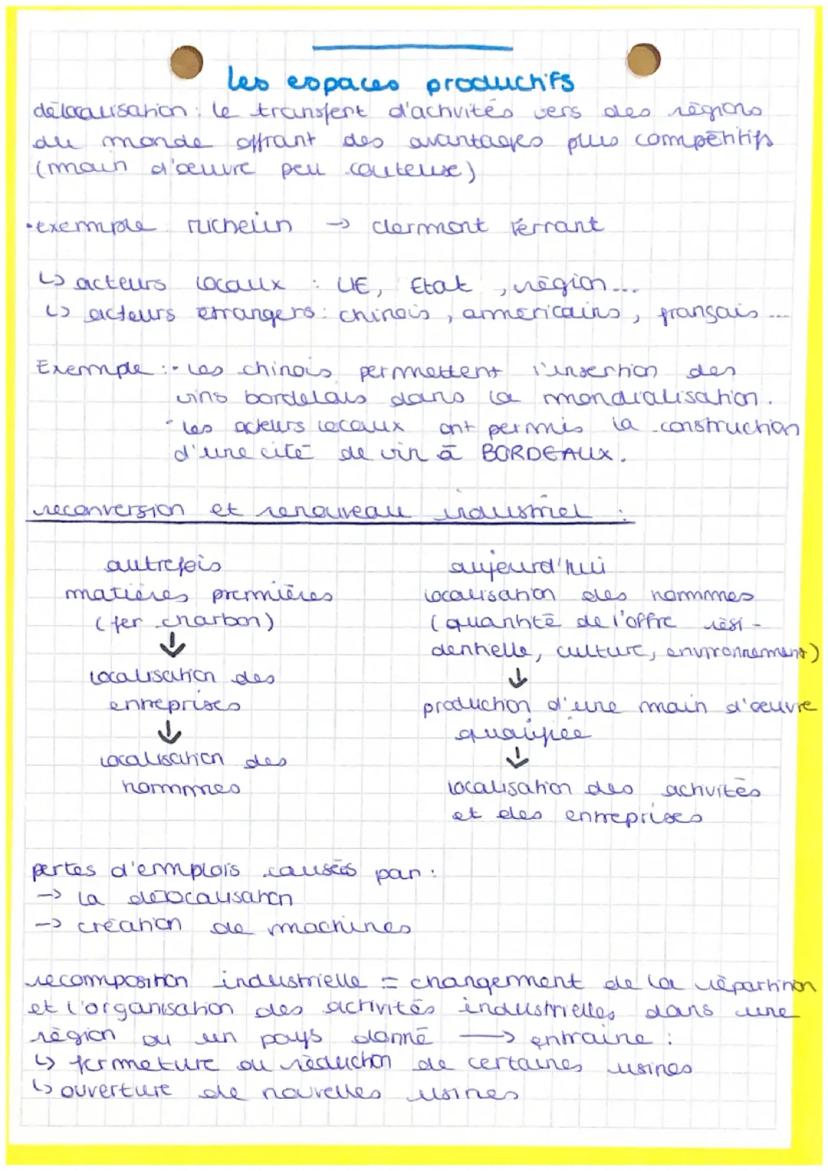 les espaces productifs
délocalisation : le transfert d'activités vers des régions
du monde offrant des avantages plus compétitifs
(main d'œuvre peu couteuse)
• exemple Michelin → clermont Ferrant
↳ acteurs locaux : UE, Etat, région...
↳ acteurs etrangers : chinois, américains, français ...
Exemple : - Les chinois permettent l'insertion des
vins bordelais dans la mondialisation.
- les acteurs locaux ont permis la construction
d'une cité de vin à BORDEAUX.
reconversion et renouveau industriel :
autrefois
matières premières
(fer charbon)
↓
localisation des
entreprises
↓
localisation des
hommmes
aujourd'hui
localisation des hommmes
(quantité de l'offre rési-
dentielle, culture, environnement)
↓
production d'une main d'œuvre
qualifiée
↓
localisation des activités
et des entreprises
pertes d'emplois causées par :
→ la délocalisation
→ création de machines
recomposition industrielle = changement de la répartition
et l'organisation des activités industrielles dans une
région ou un pays donné → entraine :
↳ fermeture ou réduction de certaines usines
↳ ouverture de nouvelles usines